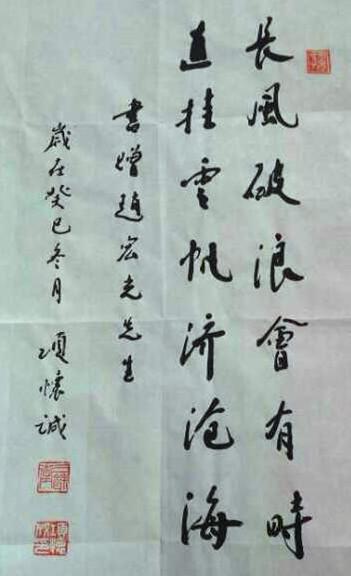 長風破浪會有時
直挂雲帆济沧海
書贈趙宏光先生
歲在癸巳冬月 項懷誠